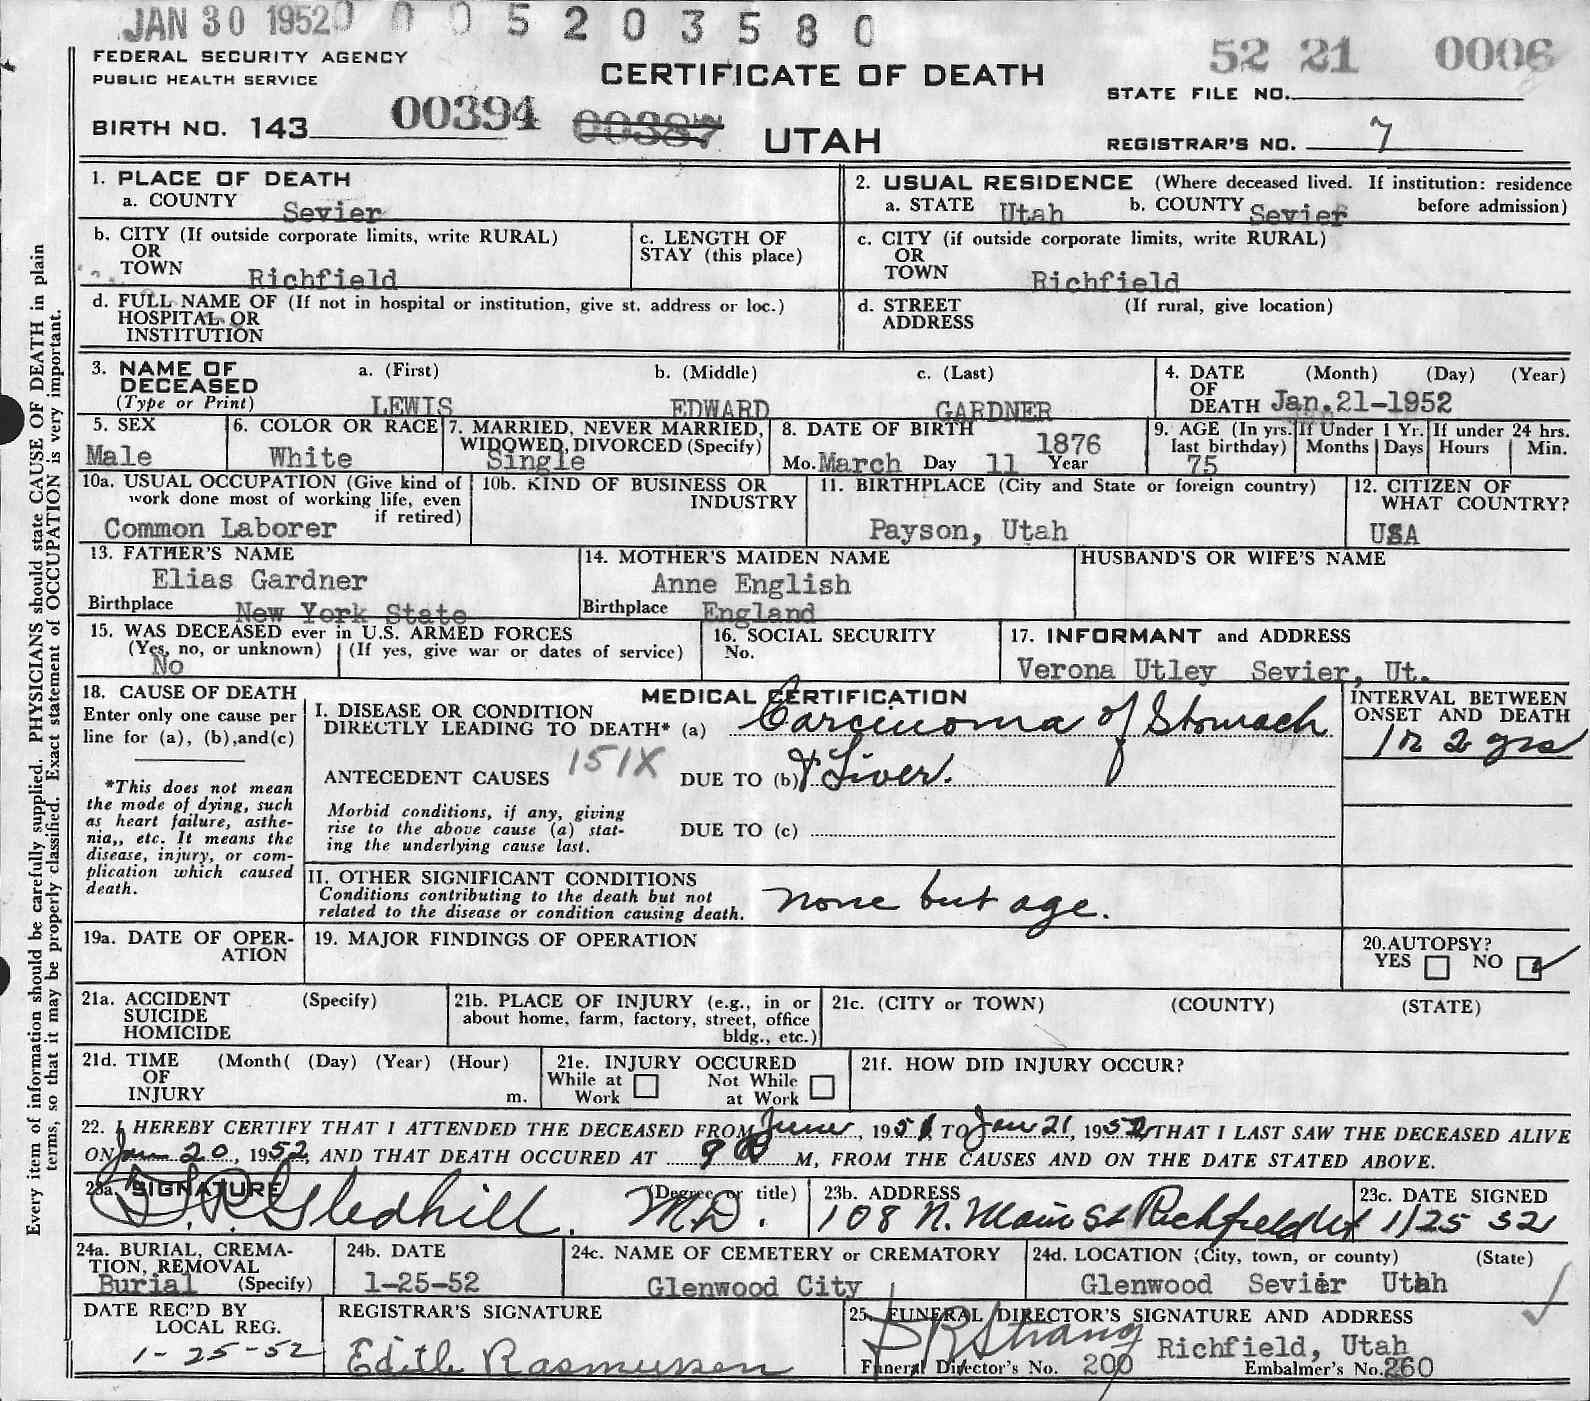 JAN 30 1952 0 0 0 5 2 0 3 5 8 0
FEDERAL SECURITY AGENCY
PUBLIC HEALTH SERVICE
CERTIFICATE OF DEATH
52 21 0006
STATE FILE NO.
BIRTH NO. 143 00394 00387 UTAH
REGISTRAR'S NO. 7
1. PLACE OF DEATH
a. COUNTY Sevier
2. USUAL RESIDENCE (Where deceased lived. If institution: residence
a. STATE Utah b. COUNTY Sevier before admission)
b. CITY (If outside corporate limits, write RURAL)
OR
TOWN Richfield
c. LENGTH OF
STAY (this place)
c. CITY (if outside corporate limits, write RURAL)
OR
TOWN Richfield
d. FULL NAME OF (If not in hospital or institution, give st. address or loc.)
HOSPITAL OR
INSTITUTION
d. STREET (If rural, give location)
ADDRESS
3. NAME OF DECEASED
(Type or Print)
a. (First) b. (Middle) c. (Last)
LEWIS EDWARD GARDNER
4. DATE (Month) (Day) (Year)
OF
DEATH Jan.21-1952
5. SEX
Male
6. COLOR OR RACE
White
7. MARRIED, NEVER MARRIED,
WIDOWED, DIVORCED (Specify)
Single
8. DATE OF BIRTH 1876
Mo. March Day 11 Year
9. AGE (In yrs. last birthday)
75
If Under 1 Yr.
Months Days
If under 24 hrs.
Hours Min.
10a. USUAL OCCUPATION (Give kind of
work done most of working life, even
if retired)
Common Laborer
10b. KIND OF BUSINESS OR
INDUSTRY
11. BIRTHPLACE (City and State or foreign country)
Payson, Utah
12. CITIZEN OF
WHAT COUNTRY?
USA
13. FATHER'S NAME
Elias Gardner
Birthplace New York State
14. MOTHER'S MAIDEN NAME
Anne English
Birthplace England
HUSBAND'S OR WIFE'S NAME
15. WAS DECEASED ever in U.S. ARMED FORCES
(Yes, no, or unknown) (If yes, give war or dates of service)
No
16. SOCIAL SECURITY
No.
17. INFORMANT and ADDRESS
Verona Utley Sevier, Ut.
18. CAUSE OF DEATH
Enter only one cause per
line for (a), (b),and(c)
*This does not mean
the mode of dying, such
as heart failure, asthe-
nia,, etc. It means the
disease, injury, or com-
plication which caused
death.
MEDICAL CERTIFICATION
I. DISEASE OR CONDITION
DIRECTLY LEADING TO DEATH* (a) Carcinoma of Stomach
ANTECEDENT CAUSES 151X DUE TO (b) & Liver.
Morbid conditions, if any, giving
rise to the above cause (a) stat-
ing the underlying cause last.
DUE TO (c)
INTERVAL BETWEEN
ONSET AND DEATH
2 yrs
II. OTHER SIGNIFICANT CONDITIONS
Conditions contributing to the death but not
related to the disease or condition causing death.
none but age.
19a. DATE OF OPER-
ATION
19. MAJOR FINDINGS OF OPERATION
20. AUTOPSY?
YES NO
21a. ACCIDENT (Specify)
SUICIDE
HOMICIDE
21b. PLACE OF INJURY (e.g., in or
about home, farm, factory, street, office
bldg., etc.)
21c. (CITY or TOWN) (COUNTY) (STATE)
21d. TIME (Month( (Day) (Year) (Hour)
OF
INJURY m.
21e. INJURY OCCURED
While at Work
Not While at Work
21f. HOW DID INJURY OCCUR?
22. I HEREBY CERTIFY THAT I ATTENDED THE DECEASED FROM June, 1951 TO Jan 21, 1952 THAT I LAST SAW THE DECEASED ALIVE
ON Jan 20, 1952, AND THAT DEATH OCCURED AT 9 M, FROM THE CAUSES AND ON THE DATE STATED ABOVE.
23a. SIGNATURE (Degree or title)
Gledhill. M.D.
23b. ADDRESS
108 N. Main St Richfield Ut
23c. DATE SIGNED
1/25 52
24a. BURIAL, CREMA-
TION, REMOVAL
Burial (Specify)
24b. DATE
1-25-52
24c. NAME OF CEMETERY or CREMATORY
Glenwood City
24d. LOCATION (City, town, or county) (State)
Glenwood Sevier Utah
DATE REC'D BY
LOCAL REG.
1-25-52
REGISTRAR'S SIGNATURE
Edith Rasmussen
25. FUNERAL DIRECTOR'S SIGNATURE AND ADDRESS
Strang Richfield, Utah
Funeral Director's No. 200 Embalmer's No. 260
Every item of information should be carefully supplied. PHYSICIANS should state CAUSE OF DEATH in plain
terms, so that it may be properly classified. Exact statement of OCCUPATION is very important.